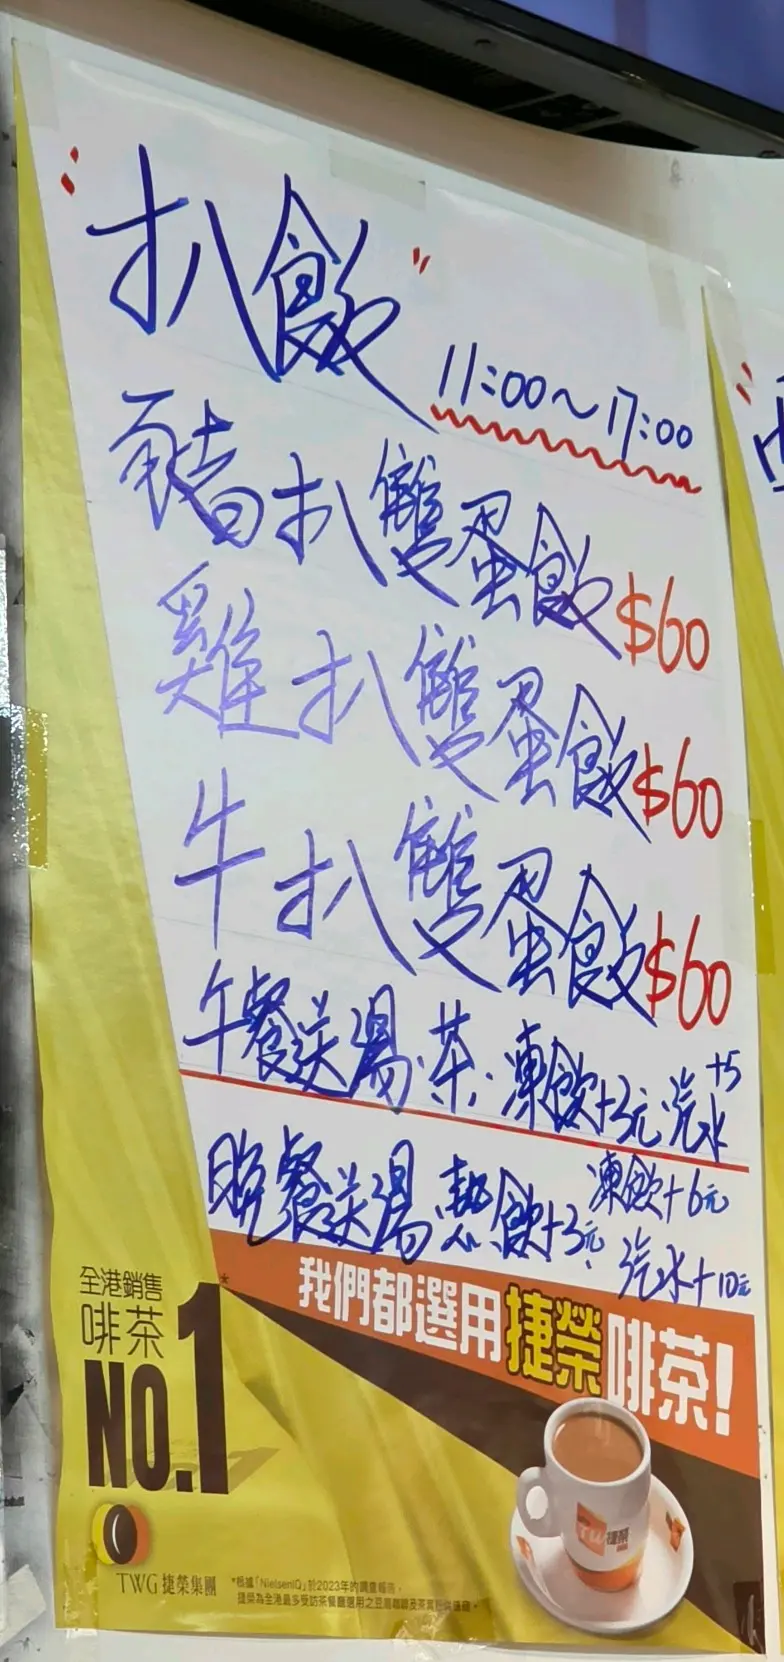 "扒飯"
11:00~17:00
豬扒雙蛋飯$60
雞扒雙蛋飯$60
牛扒雙蛋飯$60
午餐送湯.茶.凍飲+3元.汽水+5
晚餐送湯.熱飲+3元.凍飲+6元
汽水+10元
我們都選用捷榮啡茶!
全港銷售
啡茶
NO.1*
TWG 捷榮集團
*根據「NielsenIQ」於2023年的調查報告,
捷榮為全港最多受訪茶餐廳選用之
捷榮